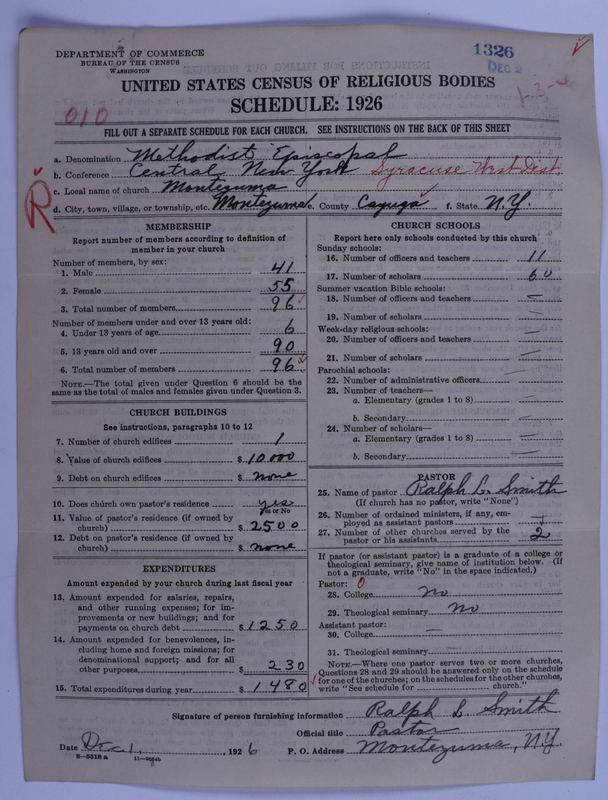 DEPARTMENT OF COMMERCE
BUREAU OF THE CENSUS
WASHINGTON
1326
DEC 2
1-3-
UNITED STATES CENSUS OF RELIGIOUS BODIES
SCHEDULE: 1926
010
FILL OUT A SEPARATE SCHEDULE FOR EACH CHURCH. SEE INSTRUCTIONS ON THE BACK OF THIS SHEET
a. Denomination Methodist Episcopal
b. Conference Central New York Syracuse West Dist.
c. Local name of church Montezuma
d. City, town, village, or township, etc. Montezuma e. County Cayuga f. State N.Y.
R
MEMBERSHIP
Report number of members according to definition of
member in your church
Number of members, by sex:
1. Male 41
2. Female 55
3. Total number of members 96
Number of members under and over 13 years old:
4. Under 13 years of age 6
5. 13 years old and over 90
6. Total number of members 96
NOTE.—The total given under Question 6 should be
same as the total of males and females given under Question 3.
CHURCH BUILDINGS
See instructions, paragraphs 10 to 12
7. Number of church edifices 1
8. Value of church edifices $ 10000
9. Debt on church edifices $ none
10. Does church own pastor's residence yes
Yes or No
11. Value of pastor's residence (if owned by
church) $ 2500
12. Debt on pastor's residence (if owned by
church) $ none
EXPENDITURES
Amount expended by your church during last fiscal year
13. Amount expended for salaries, repairs,
and other running expenses; for im-
provements or new buildings; and for
payments on church debt $ 1250
14. Amount expended for benevolences, in-
cluding home and foreign missions; for
denominational support; and for all
other purposes $ 230
15. Total expenditures during year $ 1480
CHURCH SCHOOLS
Report here only schools conducted by this church
Sunday schools:
16. Number of officers and teachers 11
17. Number of scholars 60
Summer vacation Bible schools:
18. Number of officers and teachers —
19. Number of scholars —
Week-day religious schools:
20. Number of officers and teachers —
21. Number of scholars —
Parochial schools:
22. Number of administrative officers —
23. Number of teachers—
a. Elementary (grades 1 to 8) —
b. Secondary —
24. Number of scholars—
a. Elementary (grades 1 to 8) —
b. Secondary —
PASTOR
25. Name of pastor Ralph L. Smith
(If church has no pastor, write "None")
26. Number of ordained ministers, if any, em-
ployed as assistant pastors —
27. Number of other churches served by the
pastor or his assistants 2
If pastor (or assistant pastor) is a graduate of a college or
theological seminary, give name of institution below. (If
not a graduate, write "No" in the space indicated.)
Pastor: 0
28. College No
29. Theological seminary No
Assistant pastor:
30. College —
31. Theological seminary —
NOTE.—Where one pastor serves two or more churches,
Questions 28 and 29 should be answered only on the schedule
for one of the churches; on the schedules for the other churches,
write "See schedule for church."
Signature of person furnishing information Ralph L. Smith
Official title Pastor
Date Dec 1, 1926 P. O. Address Montezuma, N.Y.
8—5518 a